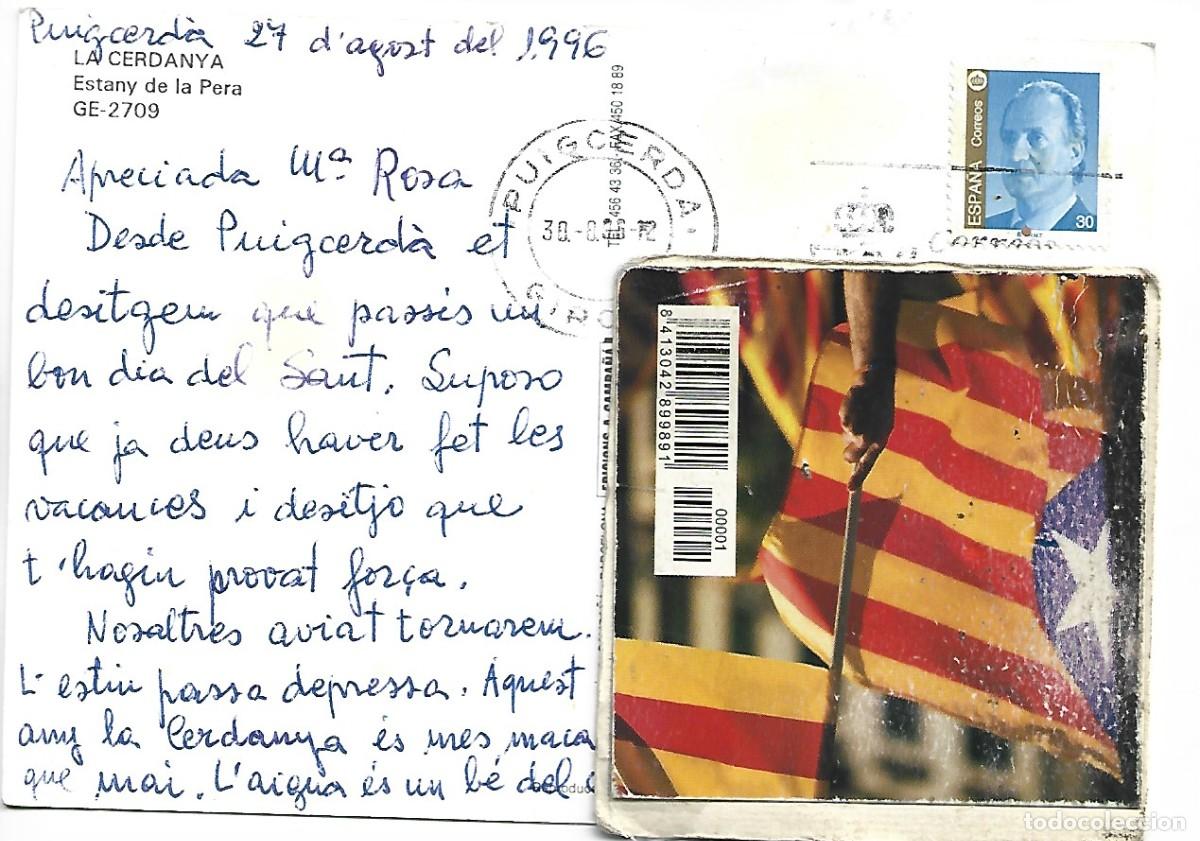 Puigcerdà 27 d'agost del 1996
LA CERDANYA
Estany de la Pera
GE-2709
Apreciada Mª Rosa
Desde Puigcerdà et
desitgem que passis un
bon dia del Sant. Suposo
que ja deus haver fet les
vacances i desitjo que
t'hagin provat força.
Nosaltres aviat tornarem.
L'estiu passa depressa. Aquest
any la Cerdanya és mes maca
que mai. L'aigua és un bé del
PUIGCERDA
30 -8
12
456 43 36
FAX 450 18 89
ESPAÑA Correos
30
Correos
EDICIONS A. CAMPAÑÀ
8 413042 899891
00001
todocoleccion